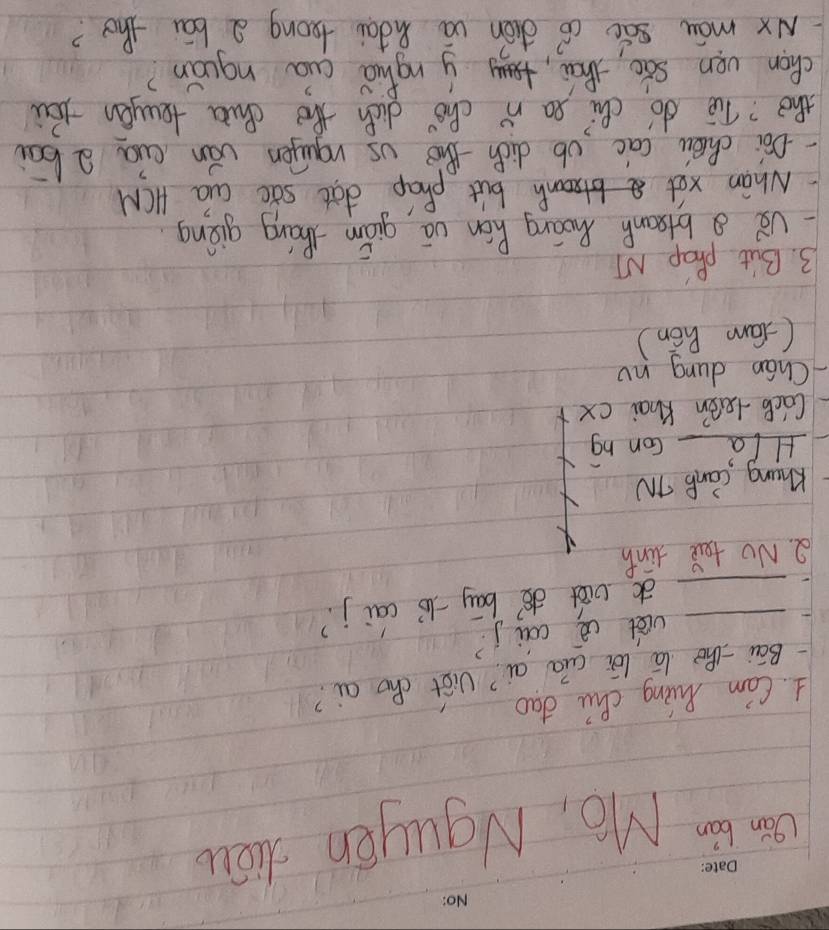 No:
Date:
Văn bản Mộ, Nguyên tiêu
1. Cảm hứng chủ đạo
- Bài thơ là lời của ai? Viết cho ai?
- ——— viết về cái j?
- ——— đc viết để bày tỏ cái j?
2. NV trữ tình
- Khung cảnh TN
- H/a —— con ng
- Cách triển khai cx
- Chân dung nv
(tâm hồn)
3. Bút pháp NT
- Vẽ 2 btranh hoàng hôn và giăm tháng giêng.
- Nhận xét bút pháp đặc sắc của HCM
- Đối chiếu các vb dịch thơ vs nguyên văn của 2 bài
thơ? Từ đó chỉ ra n chỗ dịch thơ chưa truyền tải
chọn vẹn sắc thái, ý nghĩa của nguyên?
- NX màu sắc cổ điển và hđại trong 2 bài thơ?